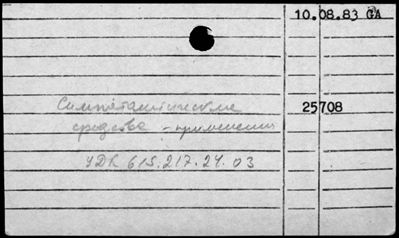 10.08.83 GA
Симпатолитические 25708
средства - применение
УДК 615.217.24.03